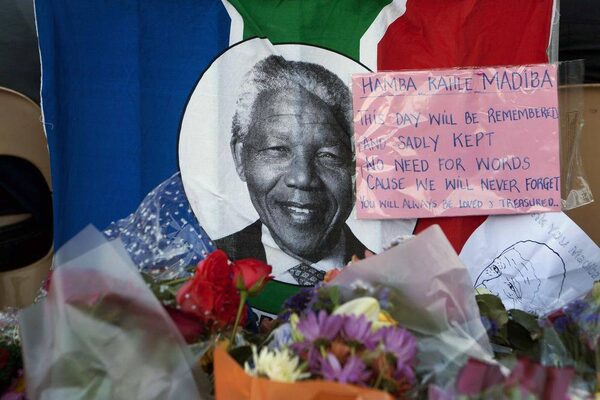 HAMBA KAHLE MADIBA
THIS DAY WILL BE REMEMBERED
AND SADLY KEPT
NO NEED FOR WORDS
'CAUSE WE WILL NEVER FORGET
YOU WILL ALWAYS BE LOVED & TREASURED..
Thank You